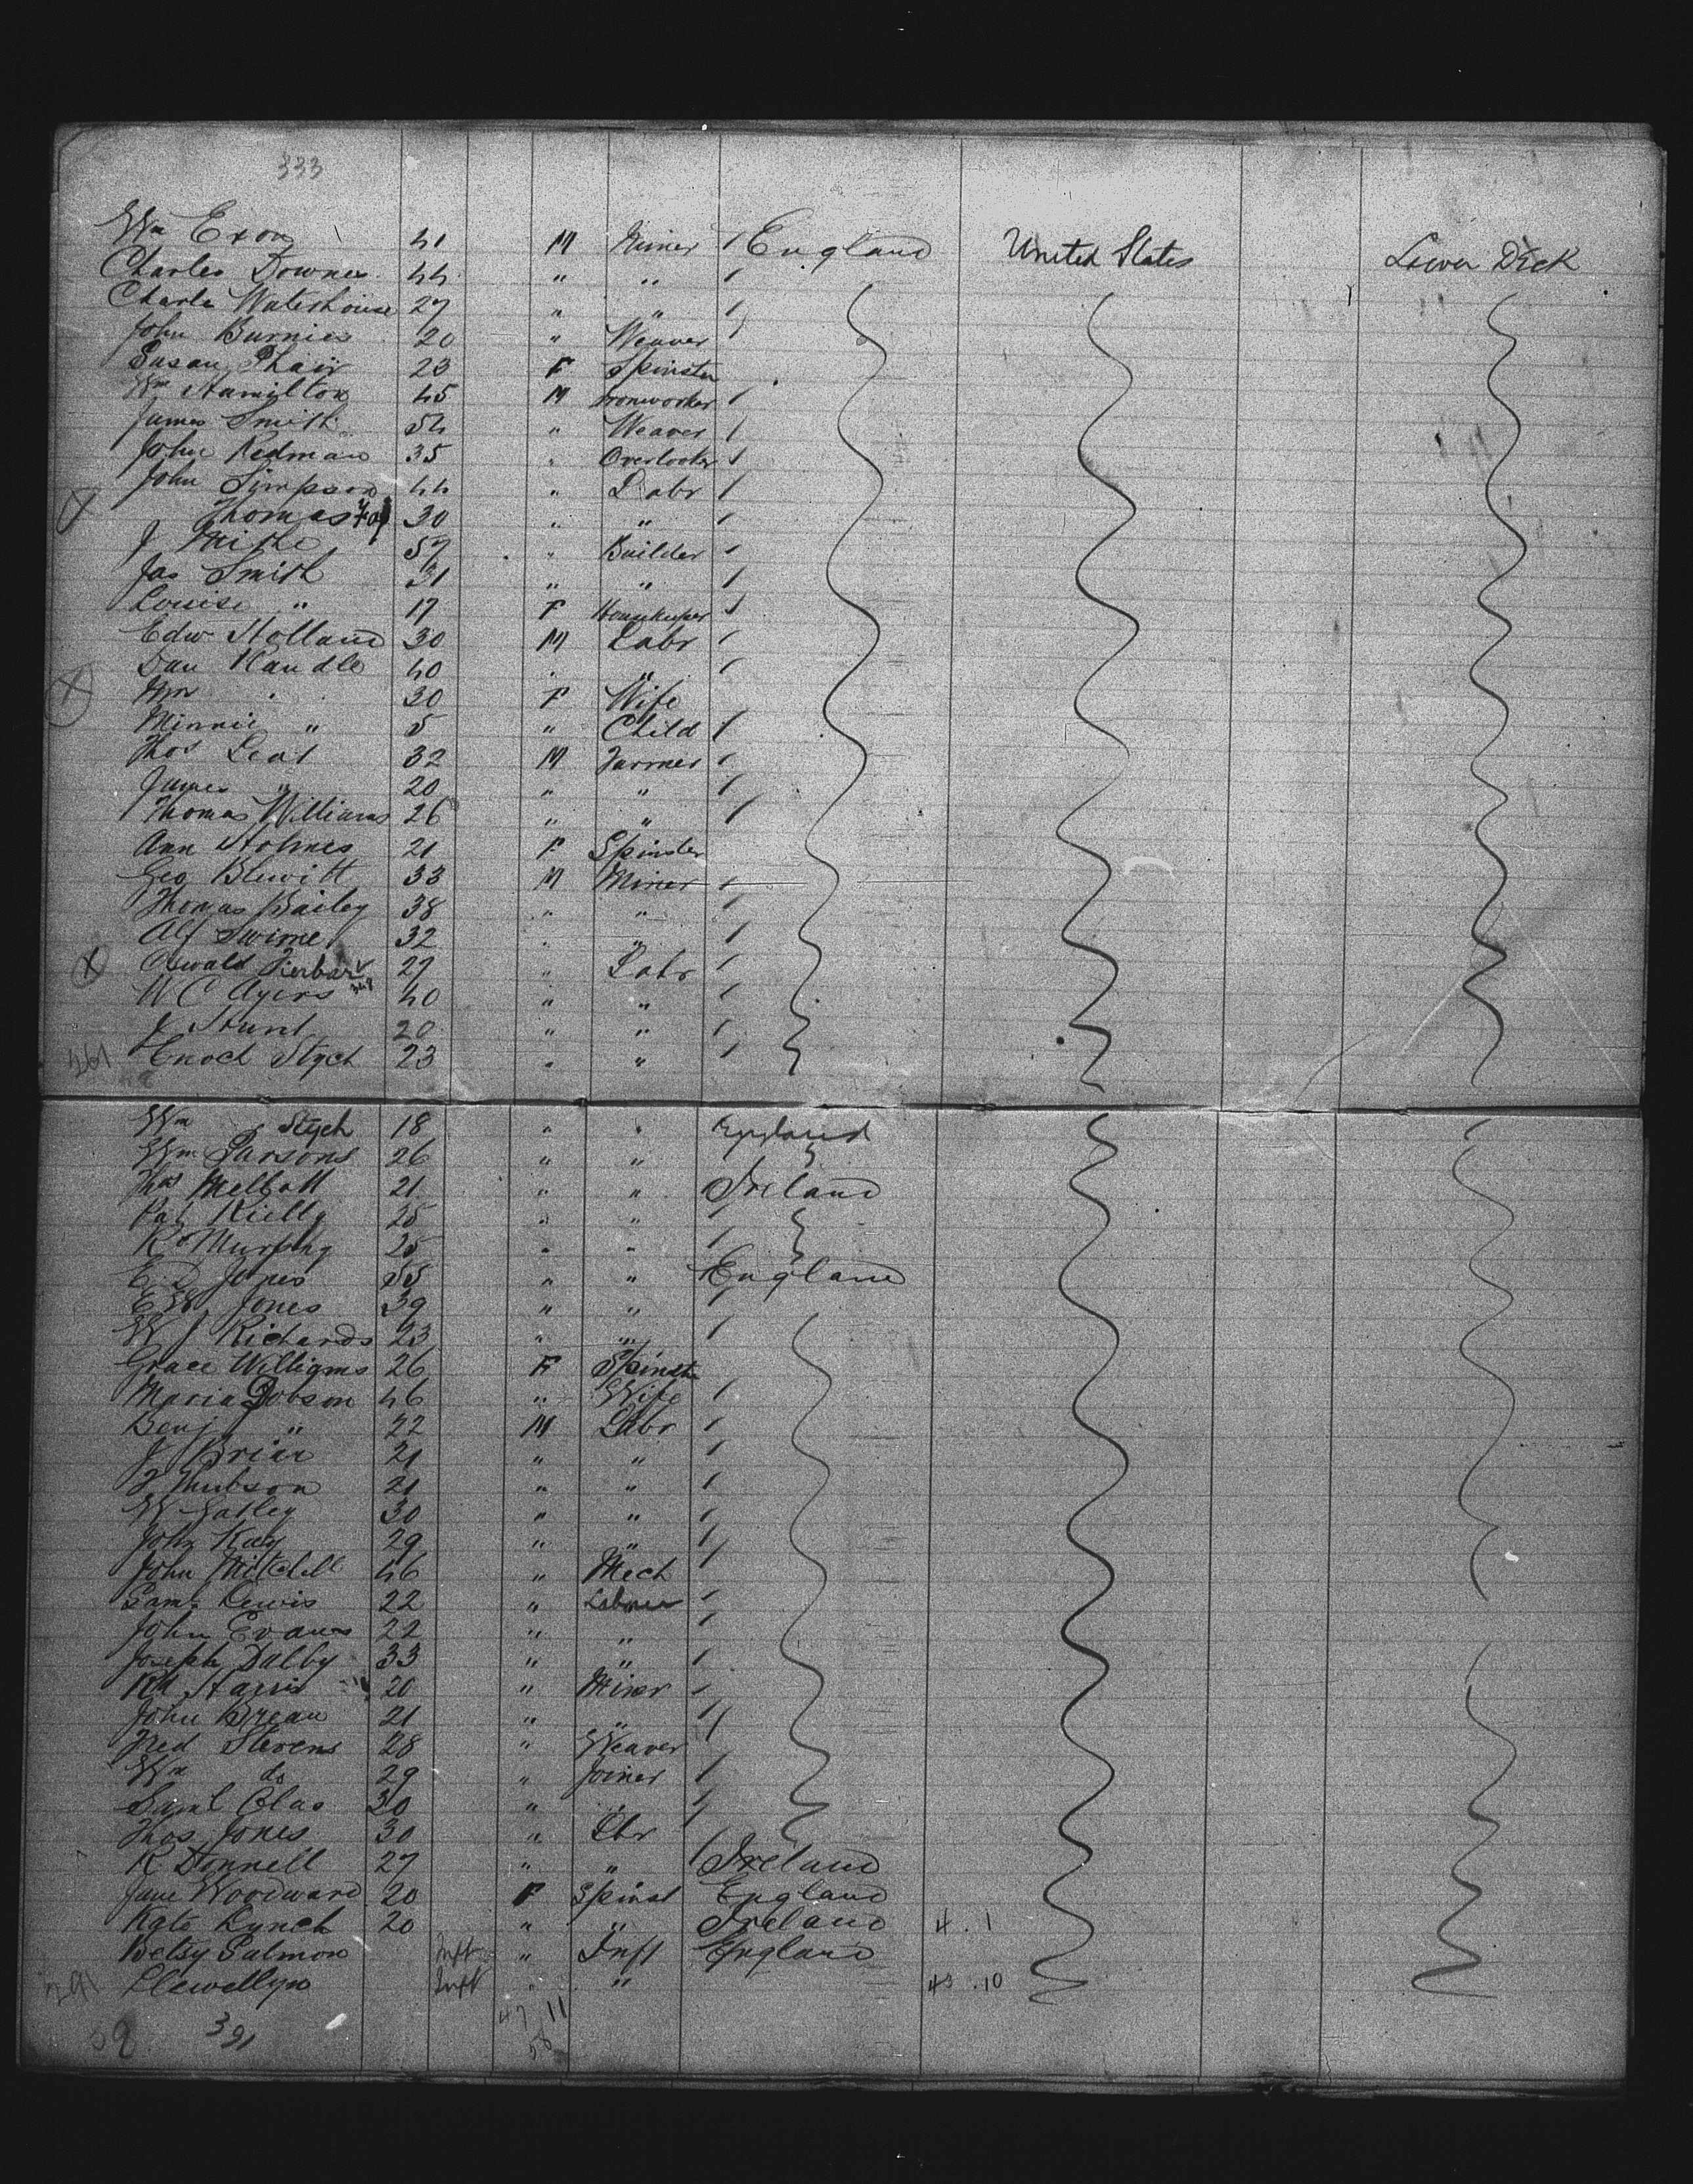 333
Wm Exon 41 M Miner England United States Lower Deck
Charles Downes 44 " "
Charles Waterhouse 27 " "
John Burnies 20 " Weaver
Susan Phair 23 F Spinster
Wm Hamilton 45 M Ironworker
James Smith 54 " Weaver
John Redman 35 " Overlooker
John Simpson 44 " Labr
X Thomas 30 " "
J 57 " Builder
Jas Smith 31 " "
Louise " 17 F Housekeeper
Edw Holland 30 M Labr
Dan Randle 40 " "
X 30 F Wife
Minnie " 5 " Child
Thos Leat 32 M Farmer
James " 20 " "
Thomas Williams 26 " "
Ann Holmes 21 F Spinster
Geo Blewitt 33 M Miner
Thomas Bailey 38 " "
Alf 32 " "
X Oswald 27 " Labr
W C Ayers 40 " "
J Hunt 20 " "
Enoch Stych 23 " "
Wm Stych 18 " " England
Wm Parsons 26 " "
Thos 21 " " Ireland
Pat Kielly 25 " "
R Murphy 25 " "
E. D Jones 55 " " England
E W Jones 39 " "
W J Richards 23 " "
Grace Williams 26 F Spinster
Maria Dobson 46 " Wife
Benj " 22 M Labr
J Briar 21 " "
21 " "
W Gatley 30 " "
John Kay 29 " "
John Mitchell 46 " Mech
Saml Lewis 22 " Labour
John Evans 22 " "
Joseph Dalby 33 " "
Rd Harris 20 " Miner
John Brean 21 " "
Fred Stevens 28 " Weaver
Wm do 29 " Joiner
Saml Clas 30 " "
Thos Jones 30 " Lbr
R Donnell 27 " " Ireland
Jane Woodward 20 F Spinst England
Kate Lynch 20 " " Ireland 4 . 1
Betsy Salmon Inft " Inft England
Llewellyn Inft " " 43 . 10
47 11
391
58